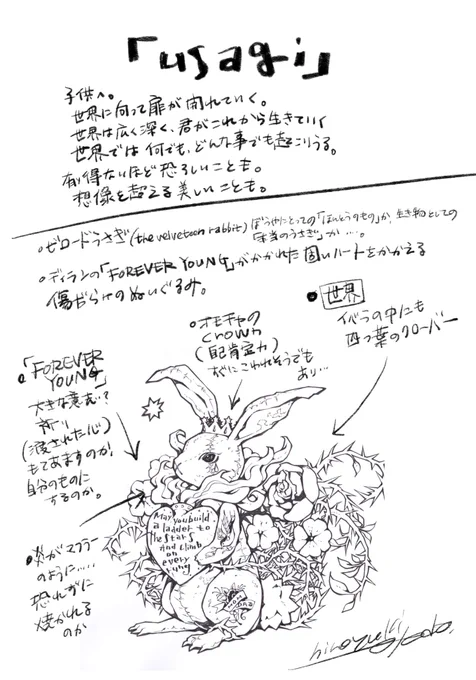 「usagi」
子供へ。
世界に向って扉が開れていく。
世界は広く深く、君がこれから生きていく
世界では何でも、どんな事でも起こりうる。
有り得ないほど恐ろしいことも。
想像を超える美しいことも。
・ビロードうさぎ(the velveteen rabbit)ぼうやにとっての「ほんとうのもの」か、生き物としての
「本当のうさぎ」か…。
・ディランの「FOREVER YOUNG」がかかれた固いハートをかかえる
傷だらけのぬいぐるみ。
・オモチャの
crown
(自己肯定力)
すぐにこわれそうでも
あり…
・世界
イバラの中にも
四つ葉のクローバー
・「FOREVER
YOUNG」
大きな意志?
祈り
(渡された心)
もてあますのか、
自分のものに
するのか。
・炎がマフラー
のように……
恐れずに
焼かれる
のか
May you build
a ladder to
the stars
and climb
on
every
rung